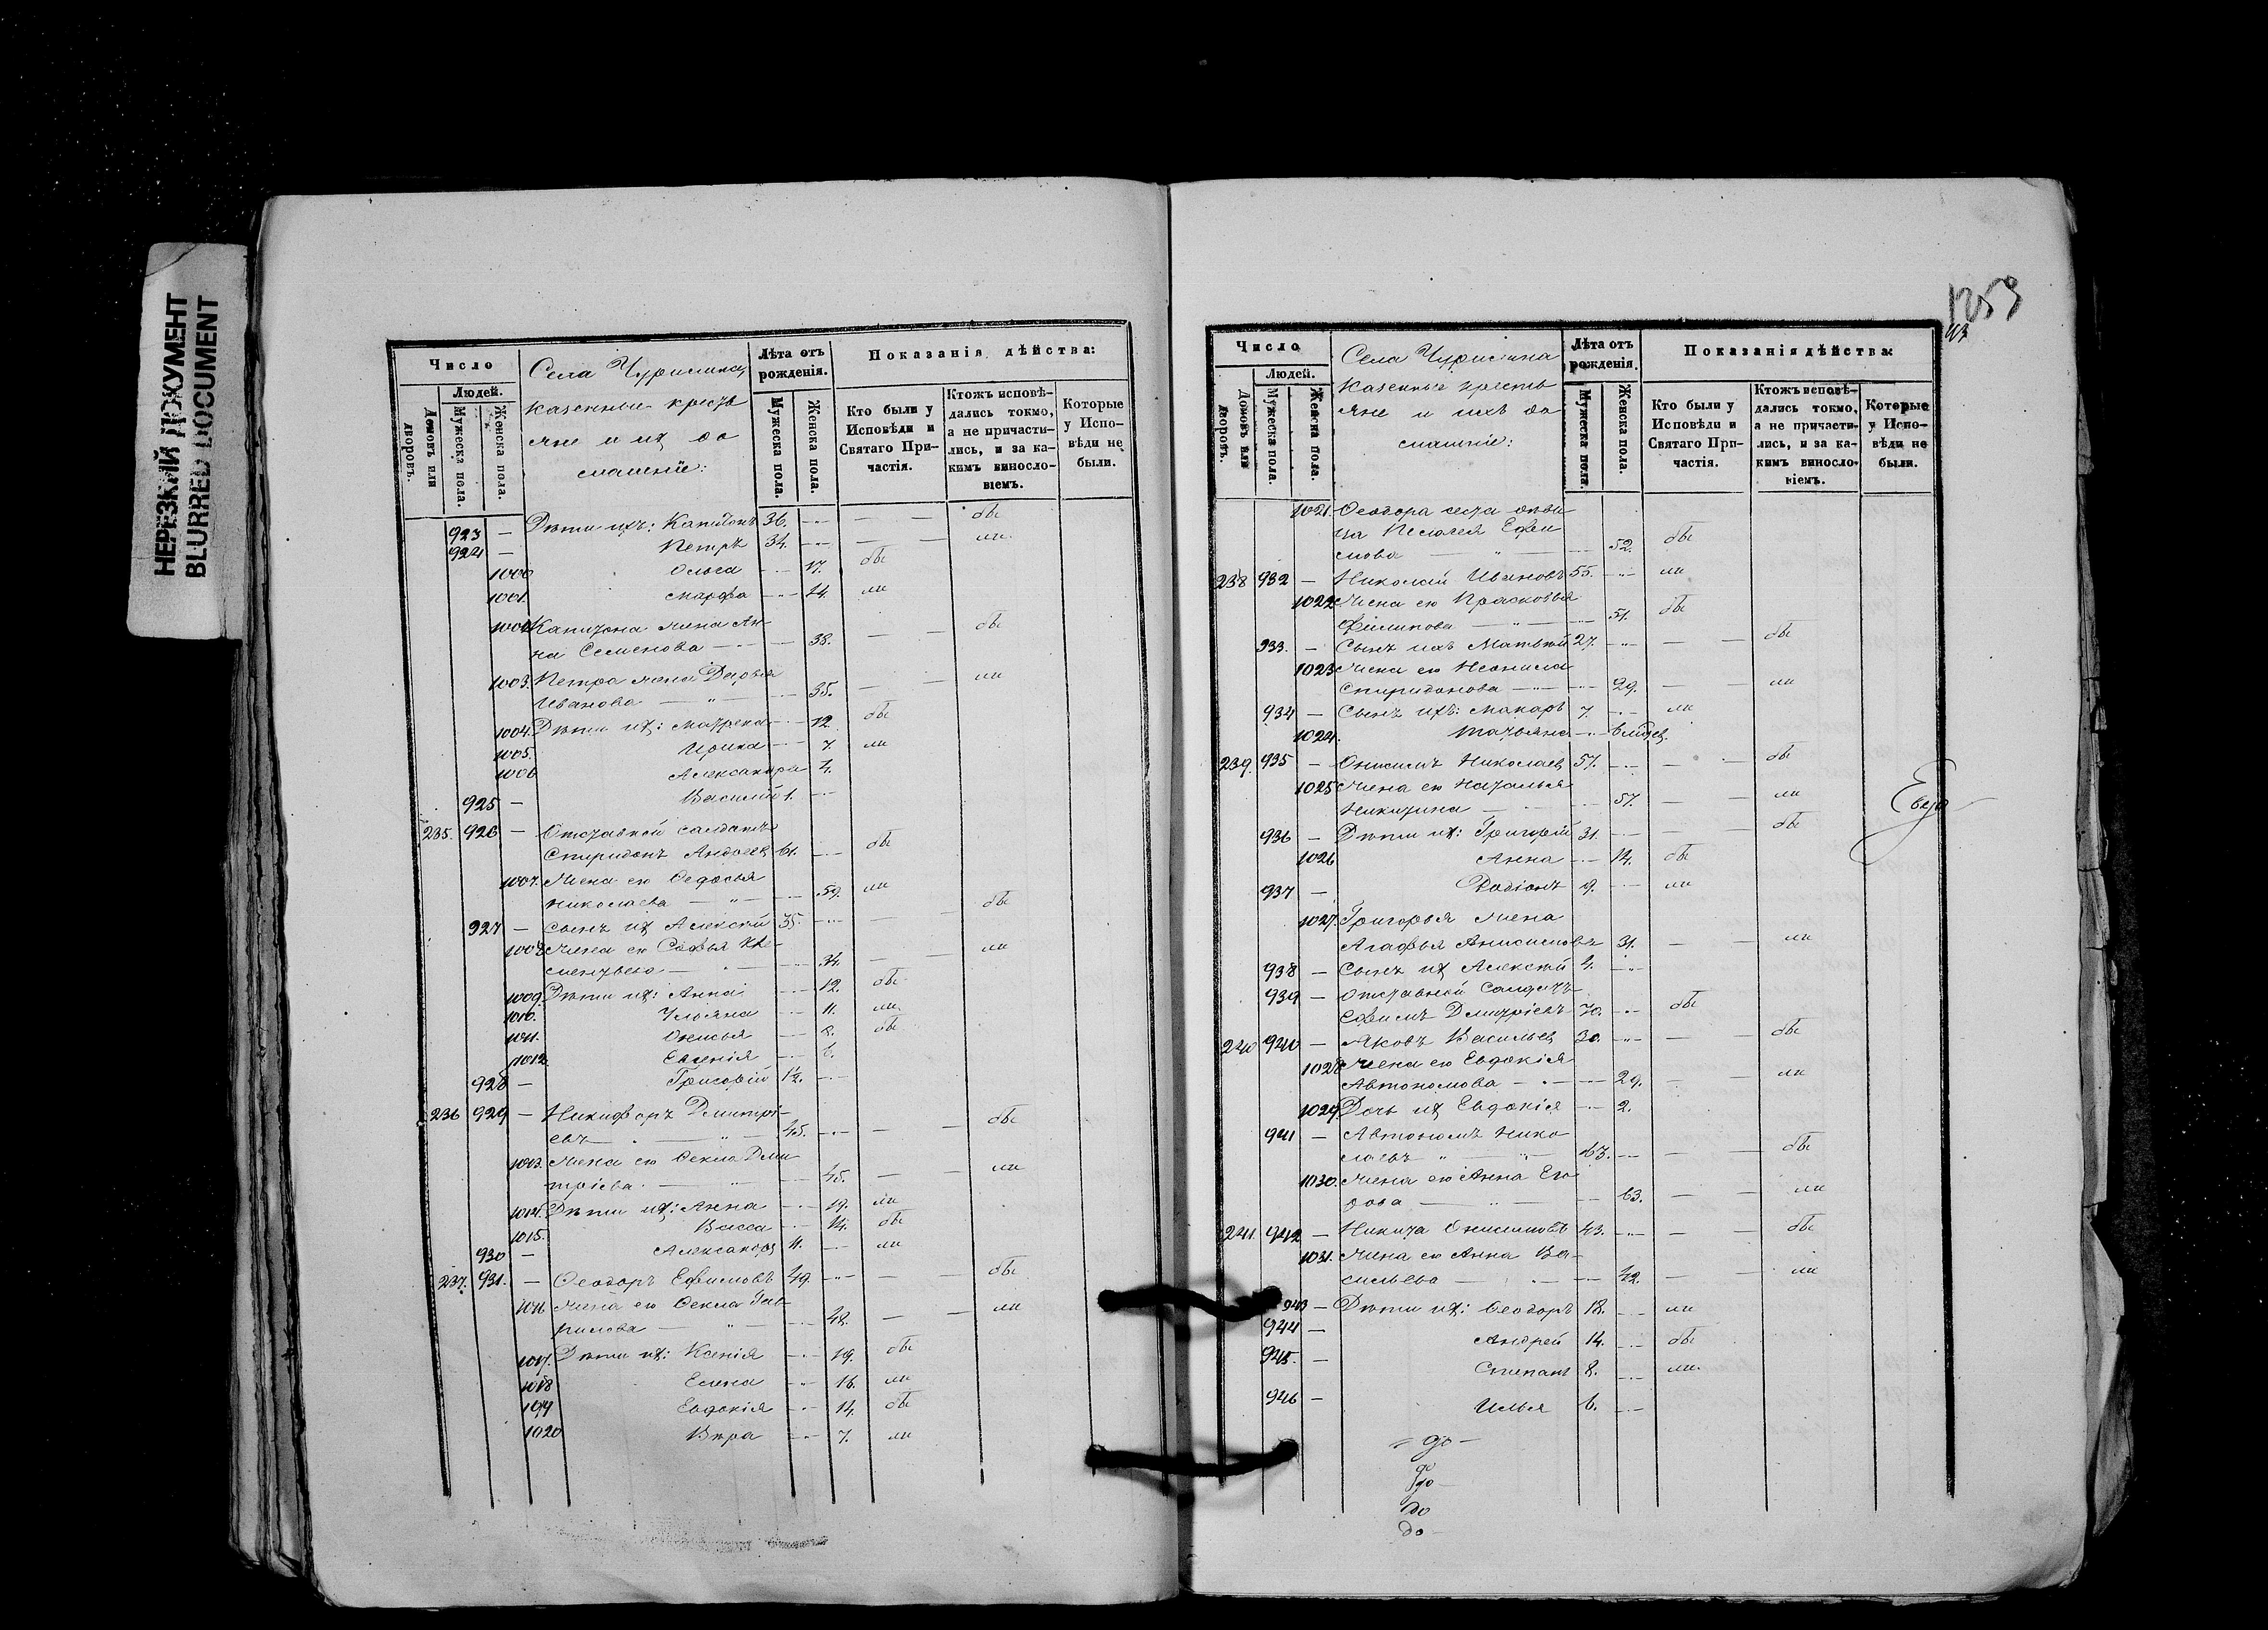 НЕРЕЗКИЙ ДОКУМЕНТ
BLURRED DOCUMENT
Число
Людей.
Домовъ или дворовъ.
Мужеска пола.
Женска пола.
Села
казенные кресть
яне и ихъ до
машніе:
Лѣта отъ рожденія.
Мужеска пола.
Женска пола.
Показанія дѣйства:
Кто были у Исповѣди и Святаго Причастія.
Ктожъ исповѣ-
дались токмо,
а не причасти-
лись, и за ка-
кимъ виносло-
віемъ.
Которые
у Испо-
вѣди не
были.
923 — Дѣти ихъ: Капитонъ 36. — — обы
924 — Петръ 34. — — ли
1000 Ольга — 17. обы
1001. Марфа — 14. ли
Капитона жена Ан-
на Семенова — 38. — — обы
1003. Петра жена Дарья
Иванова — 35. — — ли
1004. Дѣти ихъ: Матрена — 12. обы
1005. Ирина — 7. ли
1006 Александра 4.
925 — Василій 1. —
235. 926 — Отставной салдатъ
Спиридонъ Андреев 61. — обы
1007. Жена его Ѳедосья
Николаева — 59. ли
927 — Сынъ их Алексѣй 35. — — обы
1008 Жена его Софья Кле-
ментьева — 34. — — ли
1009. Дѣти их: Анна — 12. обы
1010. Ульяна — 11. ли
1011. Онисья — 8. обы
1012. Евгенія — 6.
928 — Григорій 1½. —
236 929 — Никифоръ Дмитрі-
евъ — 45. — — обы
1013. Жена его Ѳекла Дми
тріева — 45. — — ли
1014. Дѣти их: Анна — 19. ли
1015. Васса — 14. обы
930 — Александръ 11. — ли
237. 931. — Ѳеодоръ Ефимовъ 49. — — обы
1016 Жена его Ѳекла Гав-
рилова — 48. — — ли
1017. Дѣти их: Ксенія — 19. обы
1018 Елена — 16. ли
1019 Евдокія — 14. обы
1020 Вѣра — 7. ли
1259
Число
Людей.
Домовъ или дворовъ.
Мужеска пола.
Женска пола.
Села
казенные кресть
яне и ихъ до
машніе:
Лѣта отъ рожденія.
Мужеска пола.
Женска пола.
Показанія дѣйства:
Кто были у Исповѣди и Святаго Причастія.
Ктожъ исповѣ-
дались токмо,
а не причасти-
лись, и за ка-
кимъ виносло-
віемъ.
Которые
у Испо-
вѣди не
были.
1021. Ѳеодора сестра дѣви
ца Пелагея Ефи
мова — 52. обы
238 932 — Николай Ивановъ 55. — ли
1022 Жена его Прасковья
Филипова — 51. обы
933. — Сынъ ихъ Матвѣй 27. — — обы
1023 Жена его Неонила
Спиридонова — 29. — — ли
934 — Сынъ ихъ: Макаръ 7. — ли
1024. Татьяна —
239. 935 — Онисимъ Николаев 57. — — обы
1025 Жена его Наталья
Никитина — 57. — — ли
936 — Дѣти их: Григорій 31. — — обы
1026 Анна — 14. обы
937 — Родіонъ 9. — ли
1027. Григорья жена
Агафья Анисимова 31. — — ли
938 — Сынъ их Алексѣй 4. —
939 — Отставной Салдатъ
Ефимъ Дмитріевъ 70. — обы
240 940 — Яковъ Васильев 30. — — обы
1028 Жена его Евдокія
Автономова — 29. — — ли
1029 Дочь их Евдокія — 2.
941 — Автономъ Нико
лаевъ — 63. — — обы
1030. Жена его Анна Его
рова — 63. — — ли
241. 942 — Никита Онисимовъ 43. — — обы
1031. Жена его Анна Ва-
сильева — 42. — — ли
943 — Дѣти их: Ѳеодоръ 18. — ли
944 — Андрей 14. — обы
945. — Степанъ 8. — ли
946 — Илья 6. —
до
до
до
до